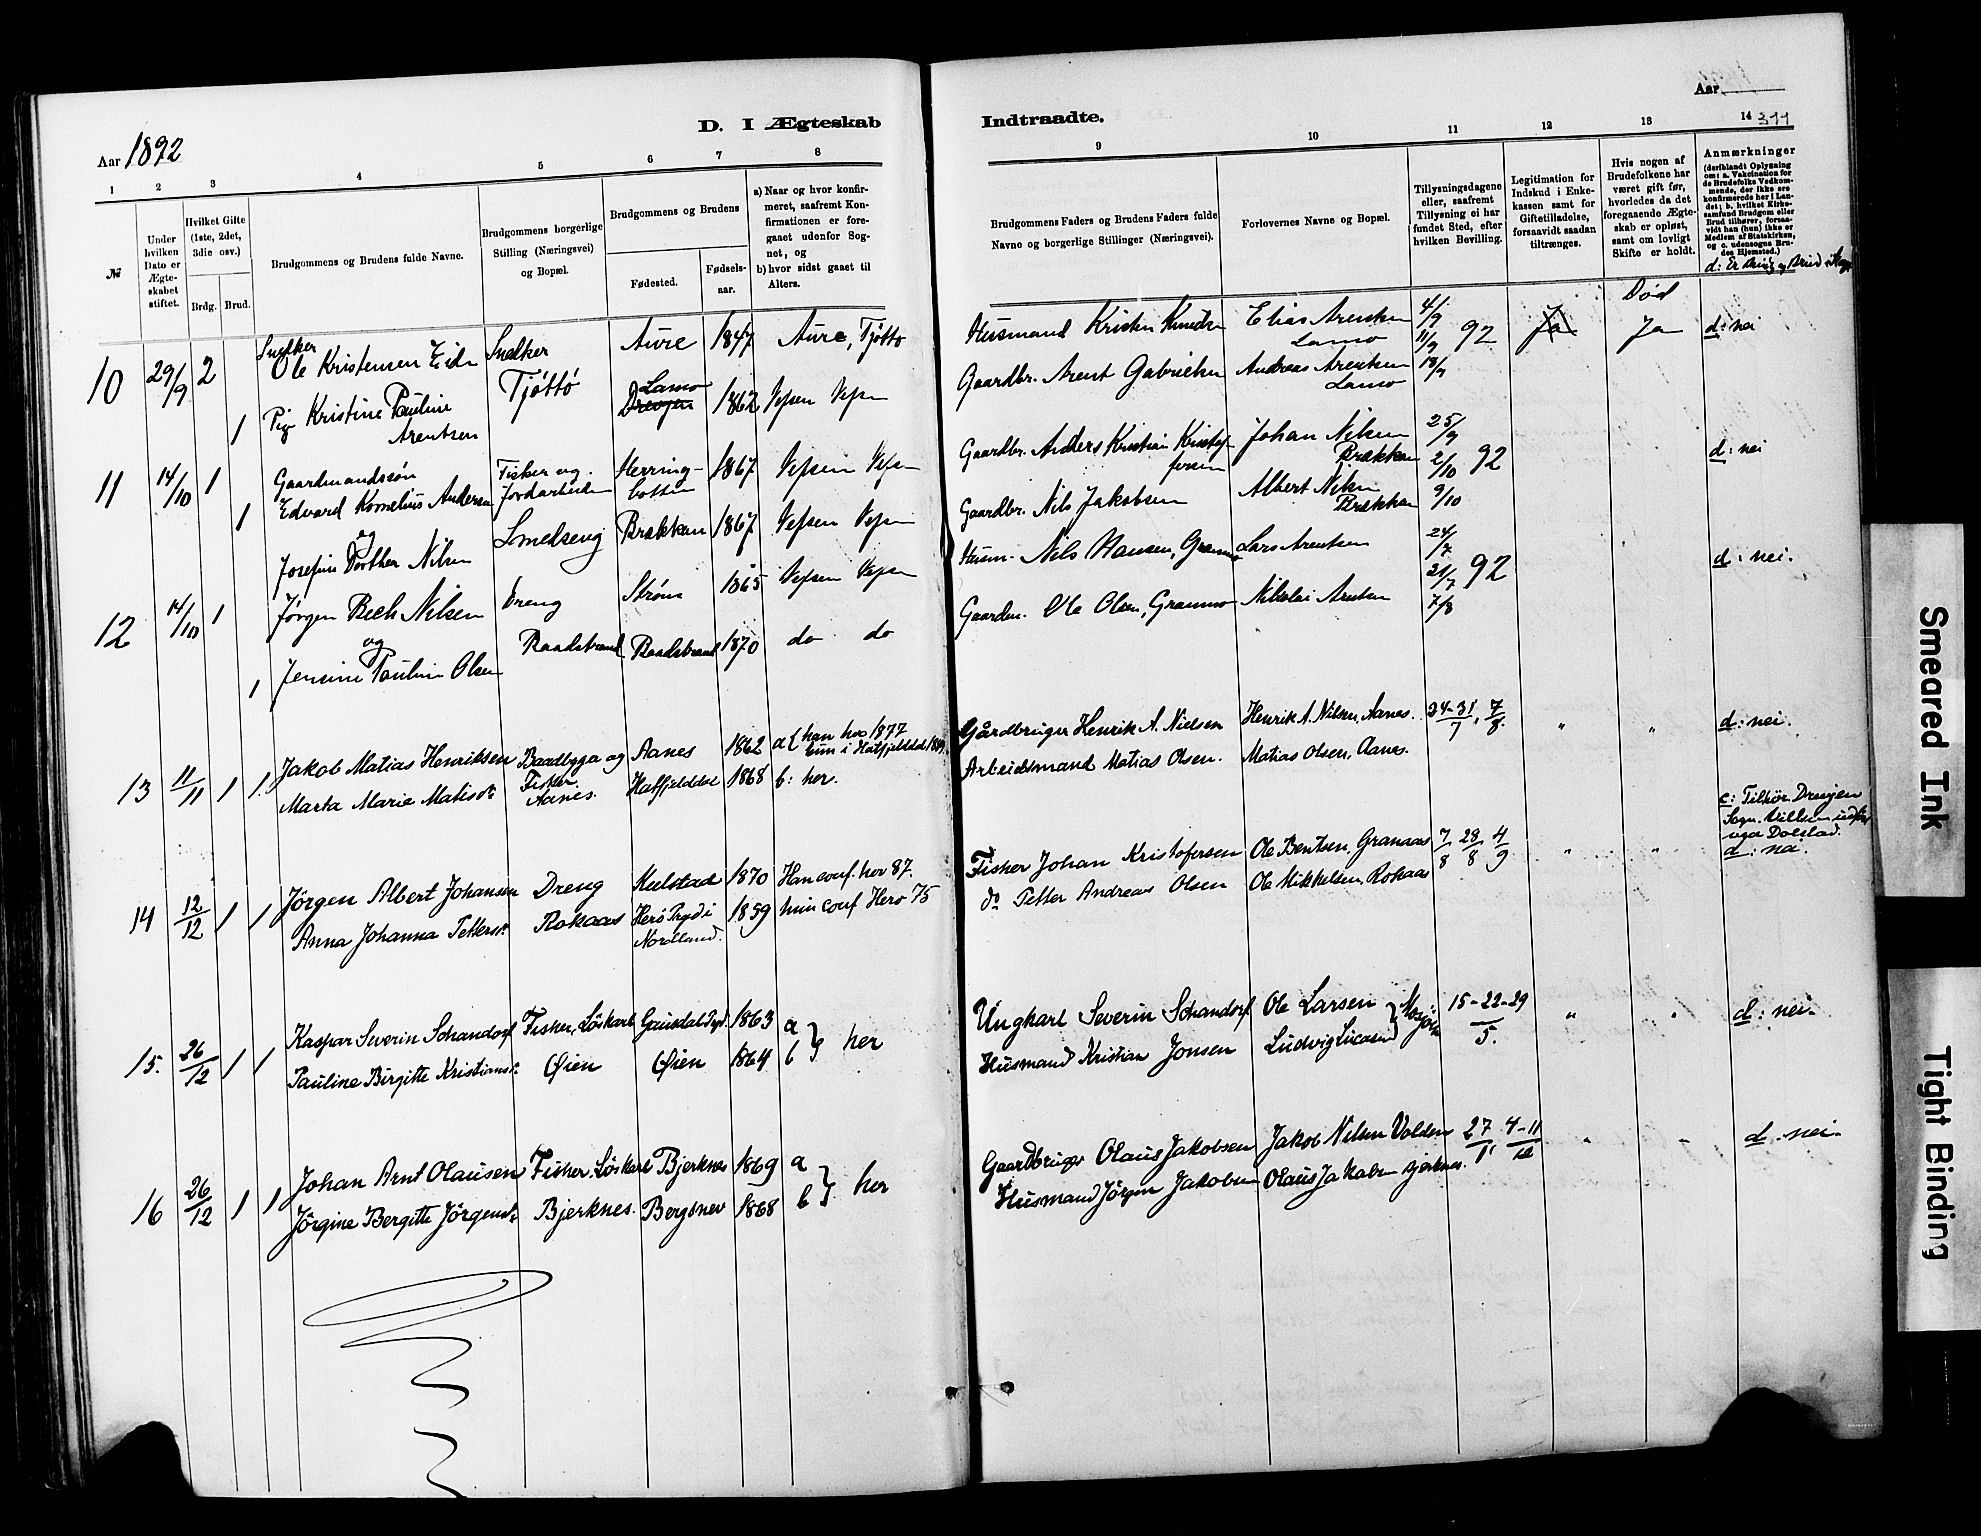 Aar 1892
D. I Ægteskab
1 2 3 4 5 6 7 8
№
Under hvilken Dato er Ægteskabet stiftet.
Hvilket Gifte (1ste, 2det, 3die osv.)
Brdg. Brud.
Brudgommens og Brudens fulde Navne.
Brudgommens borgerlige Stilling (Næringsvei) og Bopæl.
Brudgommens og Brudens
Fødested. Fødselsaar.
a) Naar og hvor konfirmeret, saafremt Konfirmationen er foregaaet udenfor Sognet, og
b) hvor sidst gaaet til Alters.
10 29/9 2 Snedker Ole Kristensen Eide Snedker Aure 1847 Aure, Tjøtto
1 Pige Kristine Pauline Arentsen Tjöttö Lamo Drevjen 1862 Vefsen Vefsn
11 14/10 1 Gaardmandssön Edvard Kornelius Andersen Fisker og Jordarbeider Herringbotten 1867 Vefsen Vefsn
1 og Josefine Dorthea Nilsen Smedseng Brækkan 1867 Vefsen Vefsn
12 14/10 1 Jørgen Bech Nilsen Dreng Strøm 1865 Vefsen Vefsn
1 og Jensine Pauline Olsen Raadstrand Raadstrand 1870 do do
13 11/11 1 1 Jakob Matias Henriksen Baadbygg. og Aanes 1862 a { han her 1877 hun i Hatfjelddal
Marta Marie Matisd. Fisker Aanes. Hatfjelddal 1868 b: her.
14 12/12 1 1 Jörgen Albert Johansen Dreng Kulstad 1870 Han conf. her 87.
Anna Johanna Pettersd. Rokaas Herö Prgd i Nordland. 1859 hun conf Herö 75
15. 26/12 1 1 Kaspar Severin Schandorf Fisker, Löskarl Gausdal Prgd. 1863 a } her
Pauline Birgitte Kristiansd. Øien Øien 1864 b
16 26/12 1 1 Johan Arnt Olausen Fisker. Löskarl Bjerknes 1869 a } her
Jörgine Bergitte Jörgensd. Bjerknes. Bergsnev 1868 b
Indtraadte.
Aar
9 10 11 12 13 14 311
Brudgommens Faders og Brudens Faders fulde Navne og borgerlige Stillinger (Næringsvei).
Forlovernes Navne og Bopæl.
Tillysningsdagene eller, saafremt Tillysning ei har fundet Sted, efter hvilken Bevilling.
Legitimation for Indskud i Enkekassen samt for Giftetilladelse, forsaavidt saadan tiltrænges.
Hvis nogen af Brudefolkene har været gift før, hvorledes da det foregaaende Ægteskab er opløst, samt om lovligt Skifte er holdt.
Anmærkninger
(deriblandt Oplysning om: a. Vakcination for de Brudefolks Vedkommende, der ikke ere konfirmerede her i Landet; b. hvilket Kirkesamfund Brudgom eller Brud tilhører, forsaavidt han (hun) ikke er Medlem af Statskirken, og c. udensogns Brudes Hjemsted.)
d: Er Brudg. og Brud i Slægt
Husmand Kristen Knudsen Elias Arentsen Lamo 4/9 11/9 92 18/9 Ja Død Ja d: nei
Gaardbr. Arent Gabrielsen Andreas Arentsen Lamo
Gaardbr. Anders Kristian Kristofersen Johan Nilsen Brækkan 25/9 2/10 92 9/10 d: nei
Gaardbr. Nils Jakobsen Albert Nilsen Brækkan
Husm. Nils Hansen, Granmo Lars Arentsen 24/7 31/7 92 7/8 d: nei.
Gaardm. Ole Olsen, Granmo Nikolai Arentsen
Gårdbruger Henrik A. Nielsen Henrik A. Nilsen, Aanes. 24-31/7, 7/8. " " d: nei.
Arbeidsmand Matias Olsen. Matias Olsen, Aanes.
c: Tilhör Drevjen Sogn.
Fisker Johan Kristofersen Ole Bentsen, Granaas 7/8 28/8 4/9 " " d: nei.
do Petter Andreas Olsen Ole Mikkelsen, Rokaas
Ungkarl Severin Schandorf Ole Larsen } Mosjöen 15-22-29/5. " " d: nei.
Husmand Kristian Jonsen Ludvig Lucasen
Gaardbruger Olaus Jakobsen Jakob Nilsen Volden 27/11 4-11/12 " " d. nei.
Husmand Jörgen Jakobsen Olaus Jakobsen Bjerknes.
Smeared Ink
Tight Binding